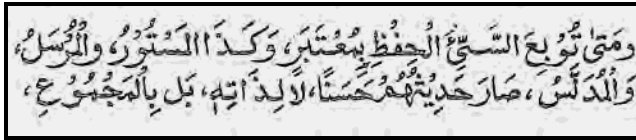 ومَتىٰ تُوبِعَ السَّيِّئُ الْحِفْظِ بِمُعْتَبَرٍ، وَكَذَا الْمَسْتُوْرُ، والْمُرْسَلُ،
وَالْمُدَلَّسُ، صَارَ حَدِيْثُهُمْ حَسَنًا، لَا لِذَاتِهِ، بَل بِالْمَجْمُوْعِ،